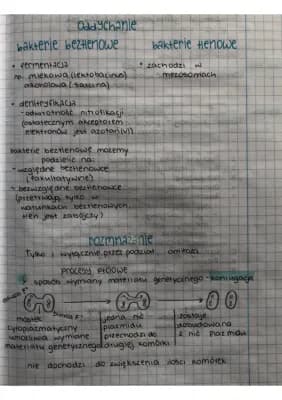 oddychanie
bakterie beztlenowe
bakterie tlenowe
• fermentacja
np. mlekowa (lektobacinus)
alkoholowa (sarcina)
• zachodzi w
mezosomach
• denitryfikacja
- odwrotność nitrofikacji
(ostatecznym akceptorem
elektronów jest azotan(V))
bakterie beztlenowe możemy
podzielić na:
- względne beztlenowce
(fakultatywne)
- bezwzględne beztlenowce
(przetrwają tylko w
warunkach beztlenowych,
tlen jest zabójczy)
rozmnażanie
Tylko i wyłącznie przez podział
procesy płciowe
sposób wymiany materiału genetycznego - koniugacja
mostek
cytoplazmatyczny
umożliwia wymianę
materiału genetycznego
jedna nić
plazmidu
przechodzi do
drugiej komórki
zostaje
dobudowana
2 nić plazmidu
nie dochodzi do zwiększenia ilości komórek